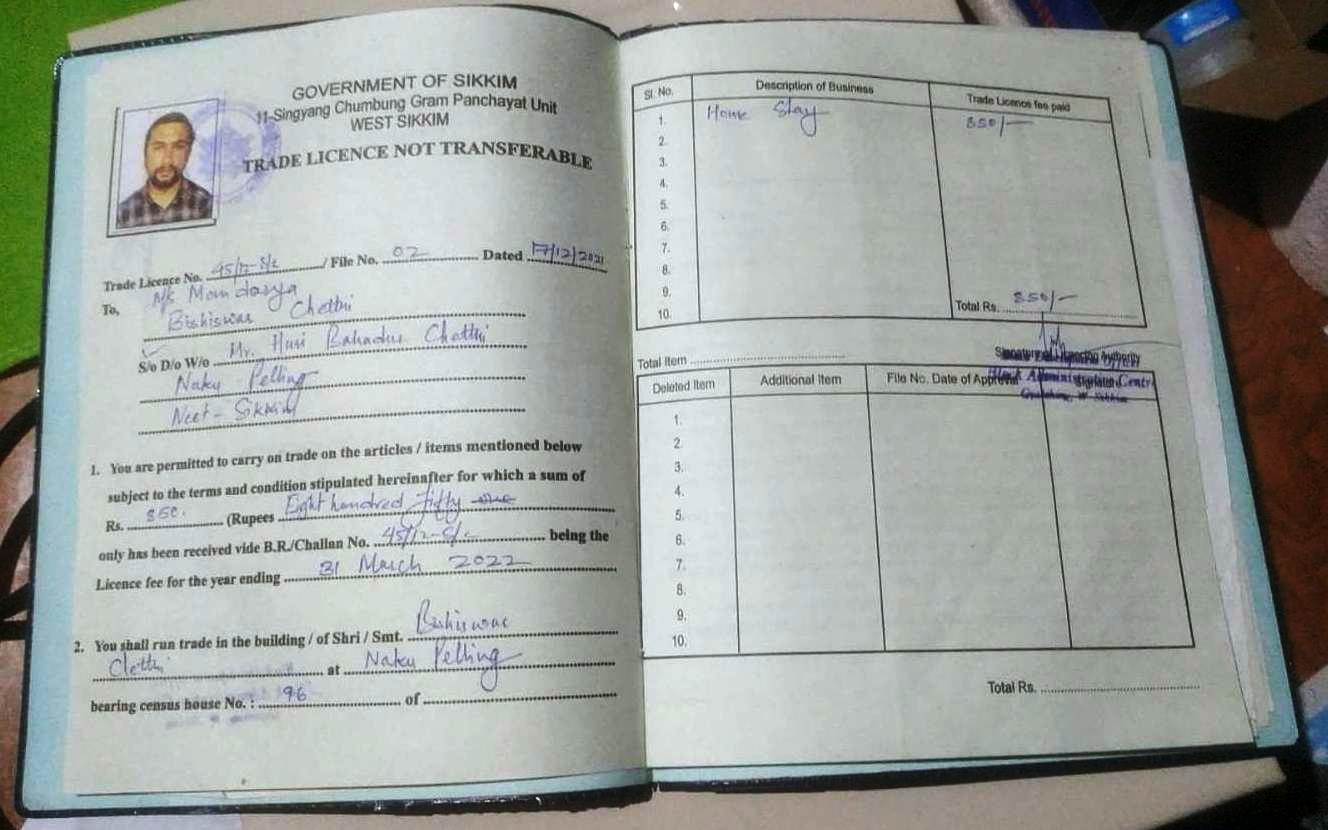 GOVERNMENT OF SIKKIM
11-Singyang Chumbung Gram Panchayat Unit
WEST SIKKIM
TRADE LICENCE NOT TRANSFERABLE
Trade Licence No. 45/12-S/c / File No. 02 Dated 17/12/2021
To, M/s
Bishiswar Chettri
S/o D/o W/o Mr. Bahadur Chettri
Naku Pelling
Sikkim
1. You are permitted to carry on trade on the articles / items mentioned below
subject to the terms and condition stipulated hereinafter for which a sum of
Rs. 850. (Rupees Eight hundred fifty
only has been received vide B.R./Challan No. 45/12-S/c being the
Licence fee for the year ending 31 March 2022
2. You shall run trade in the building / of Shri / Smt. Bishiswar
Chettri at Naku Pelling
bearing census house No. : 96 of
Sl. No. Description of Business Trade Licence fee paid
1. Home Stay 850/-
2.
3.
4.
5.
6.
7.
8.
9.
10. Total Rs. 850/-
Total Item
Deleted Item Additional Item File No. Date of Approval
1.
2.
3.
4.
5.
6.
7.
8.
9.
10.
Total Rs.